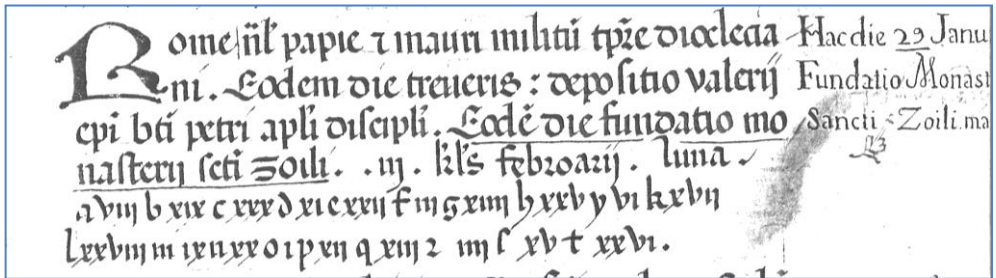 Rome nat̄l papie ⁊ mauri militū tp̄re dioclecia
ni. Eodem die treueris : depositio valerij
ep̄i bt̄i petri apl̄i discipl̄i. Eodē die fundatio mo
nasterij sct̄i zoili. .iij. kl̄s febroarij. luna
a viij b xix c xxx d xi e xxij f iij g xiiij h xxv y vi k xvij
l xxviij m ix n xx o i p xij q xxiij 2 iiij ſ xv t xxvi.
Hac die 29 Janu
Fundatio Monast
Sancti Zoili. ma